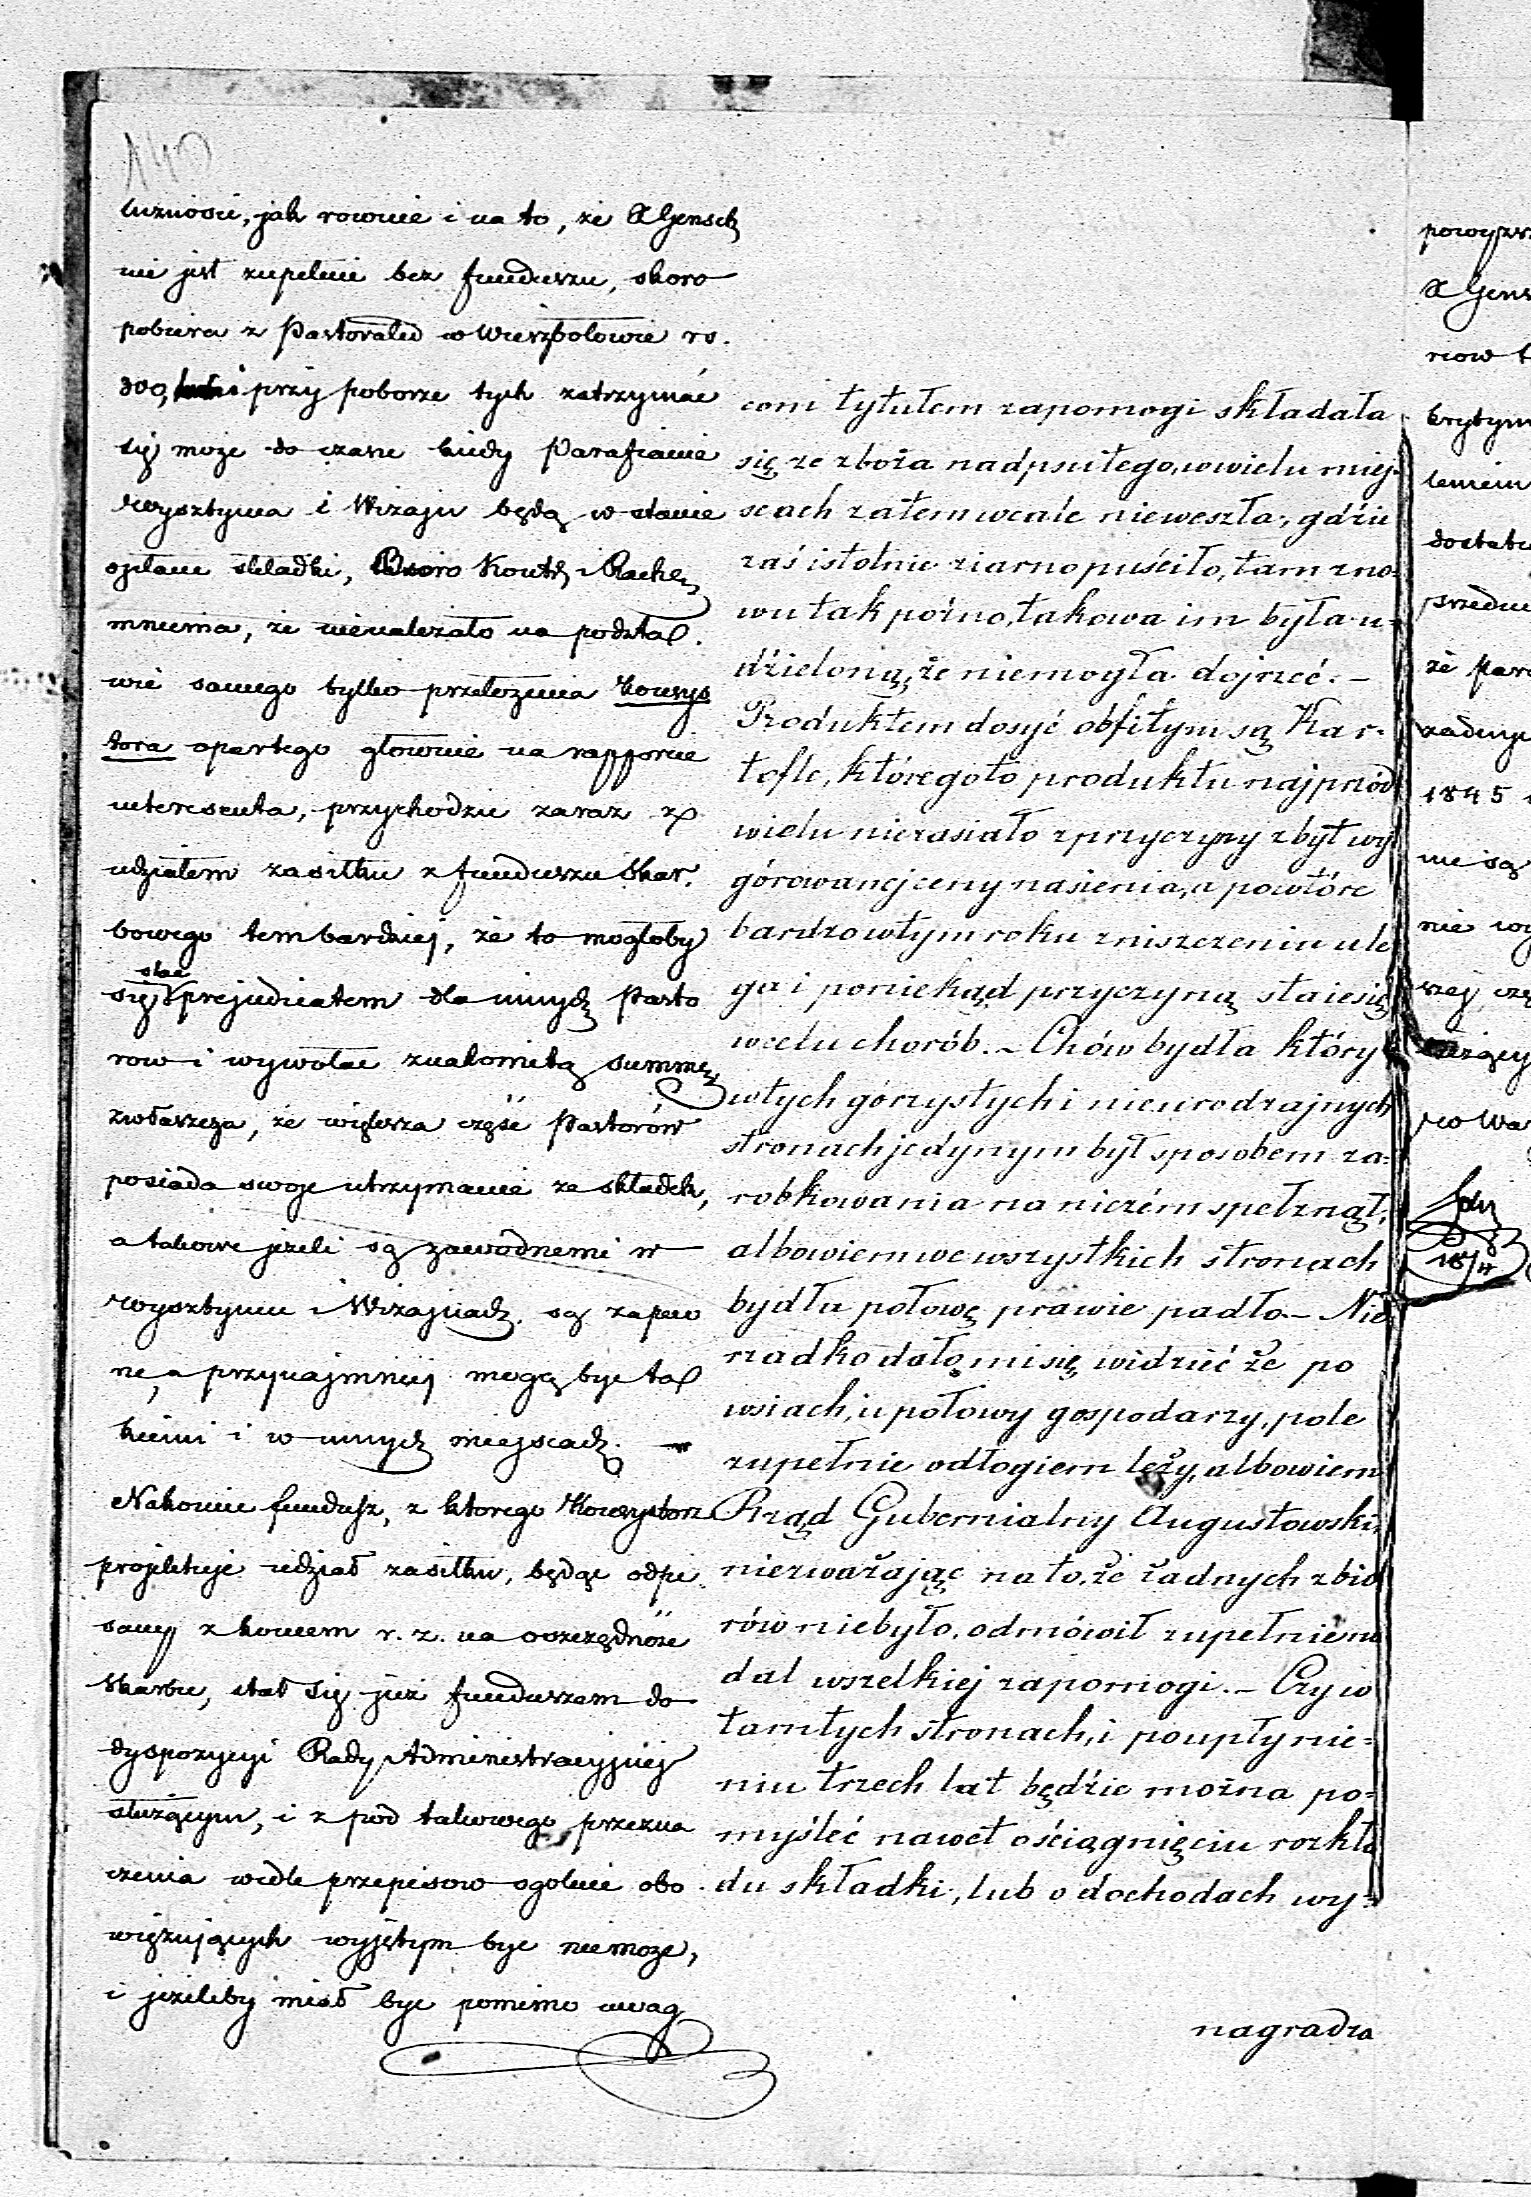 140
luzności, jak rownie i na to, że X Gensch
nie jest zupełnie bez funduszu, skoro
pobiera z Pastoralu w Wierzbołowie rs.
300, przy poborze tych zatrzymać
się może do czasu kiedy Parafianie
Wysztyńca i Wizajn będą w stanie
opłacać składki, Biuro Kontr i Rach
mniema, że nienależało na podsta
wie samego tylko przełożenia Konsys
torza opartego głownie na rapporcie
interesenta, przychodzić zaraz z
udziałem zasiłku z funduszu Skar.
bowego tembardziej, że to mogłoby
się stać prejudicatem dla innych Pasto
row i wywołać znakomitą summę
zwłaszcza, że większa część Pastorów
posiada swoje utrzymanie ze składek,
a takowe jeżeli są zawodnemi w
Wysztyńcu i Wizajnach, są zapew
ne, a przynajmniej mogą być ta
kiemi i w innych miejscach. —
Nakoniec fundusz, z ktorego Konsystorz
projektuje udział zasiłku, będąc odpi
sany z koncem r. z. na oszczędność
Skarbu, stał się już funduszem do
dyspozycyi Rady Administracyjnej
służącym, i z pod takowego przezna
czenia wedle przepisow ogolnie obo
więzujących wyjętym być niemoże,
i jeżeliby miał być pomimo uwag
com tytułem zapomogi składała
się ze zboża nadpsutego, w wielu miej-
scach zatem wcale nieweszła, gdzie
zaś istotnie ziarno puściło, tam zno-
wu tak pożno, takowa im była u-
dzieloną, że niemogła dojrzeć. —
Produktem dosyć obfitym są Kar-
tofle, któregoto produktu najprzód
wielu niezasiało z przyczyny zbyt wy
górowanej ceny nasienia, a powtóre
bardzo w tym roku zniszczeniu ule
ga i poniekąd przyczyną staie się
wielu chorób. — Chów bydła który
w tych górzystych i nieurodzajnych
stronach jedynym był sposobem za-
robkowania na niczém spełznął,
albowiem we wszystkich stronach
bydła połowę prawie padło. — Nie
rzadko dało mi się widzieć że po
wsiach, u połowy gospodarzy, pole
zupełnie odłogiem leży, albowiem
Rząd Gubernialny Augustowski
niezważając na to, że żadnych zbio
rów niebyło, odmówił zupełnie na
dal wszelkiej zapomogi. — Czy w
tamtych stronach, i po upłynie-
niu trzech lat będzie można po-
myśleć nawet o ściągnięciu rozkła
du składki, lub o dochodach wy-
nagradza
powyzsz
X Gens
row t
krytym
leniem
dostate
przedm
że para
żadnyc
1845
nie są
nie wy
szej czę
w War
18/11